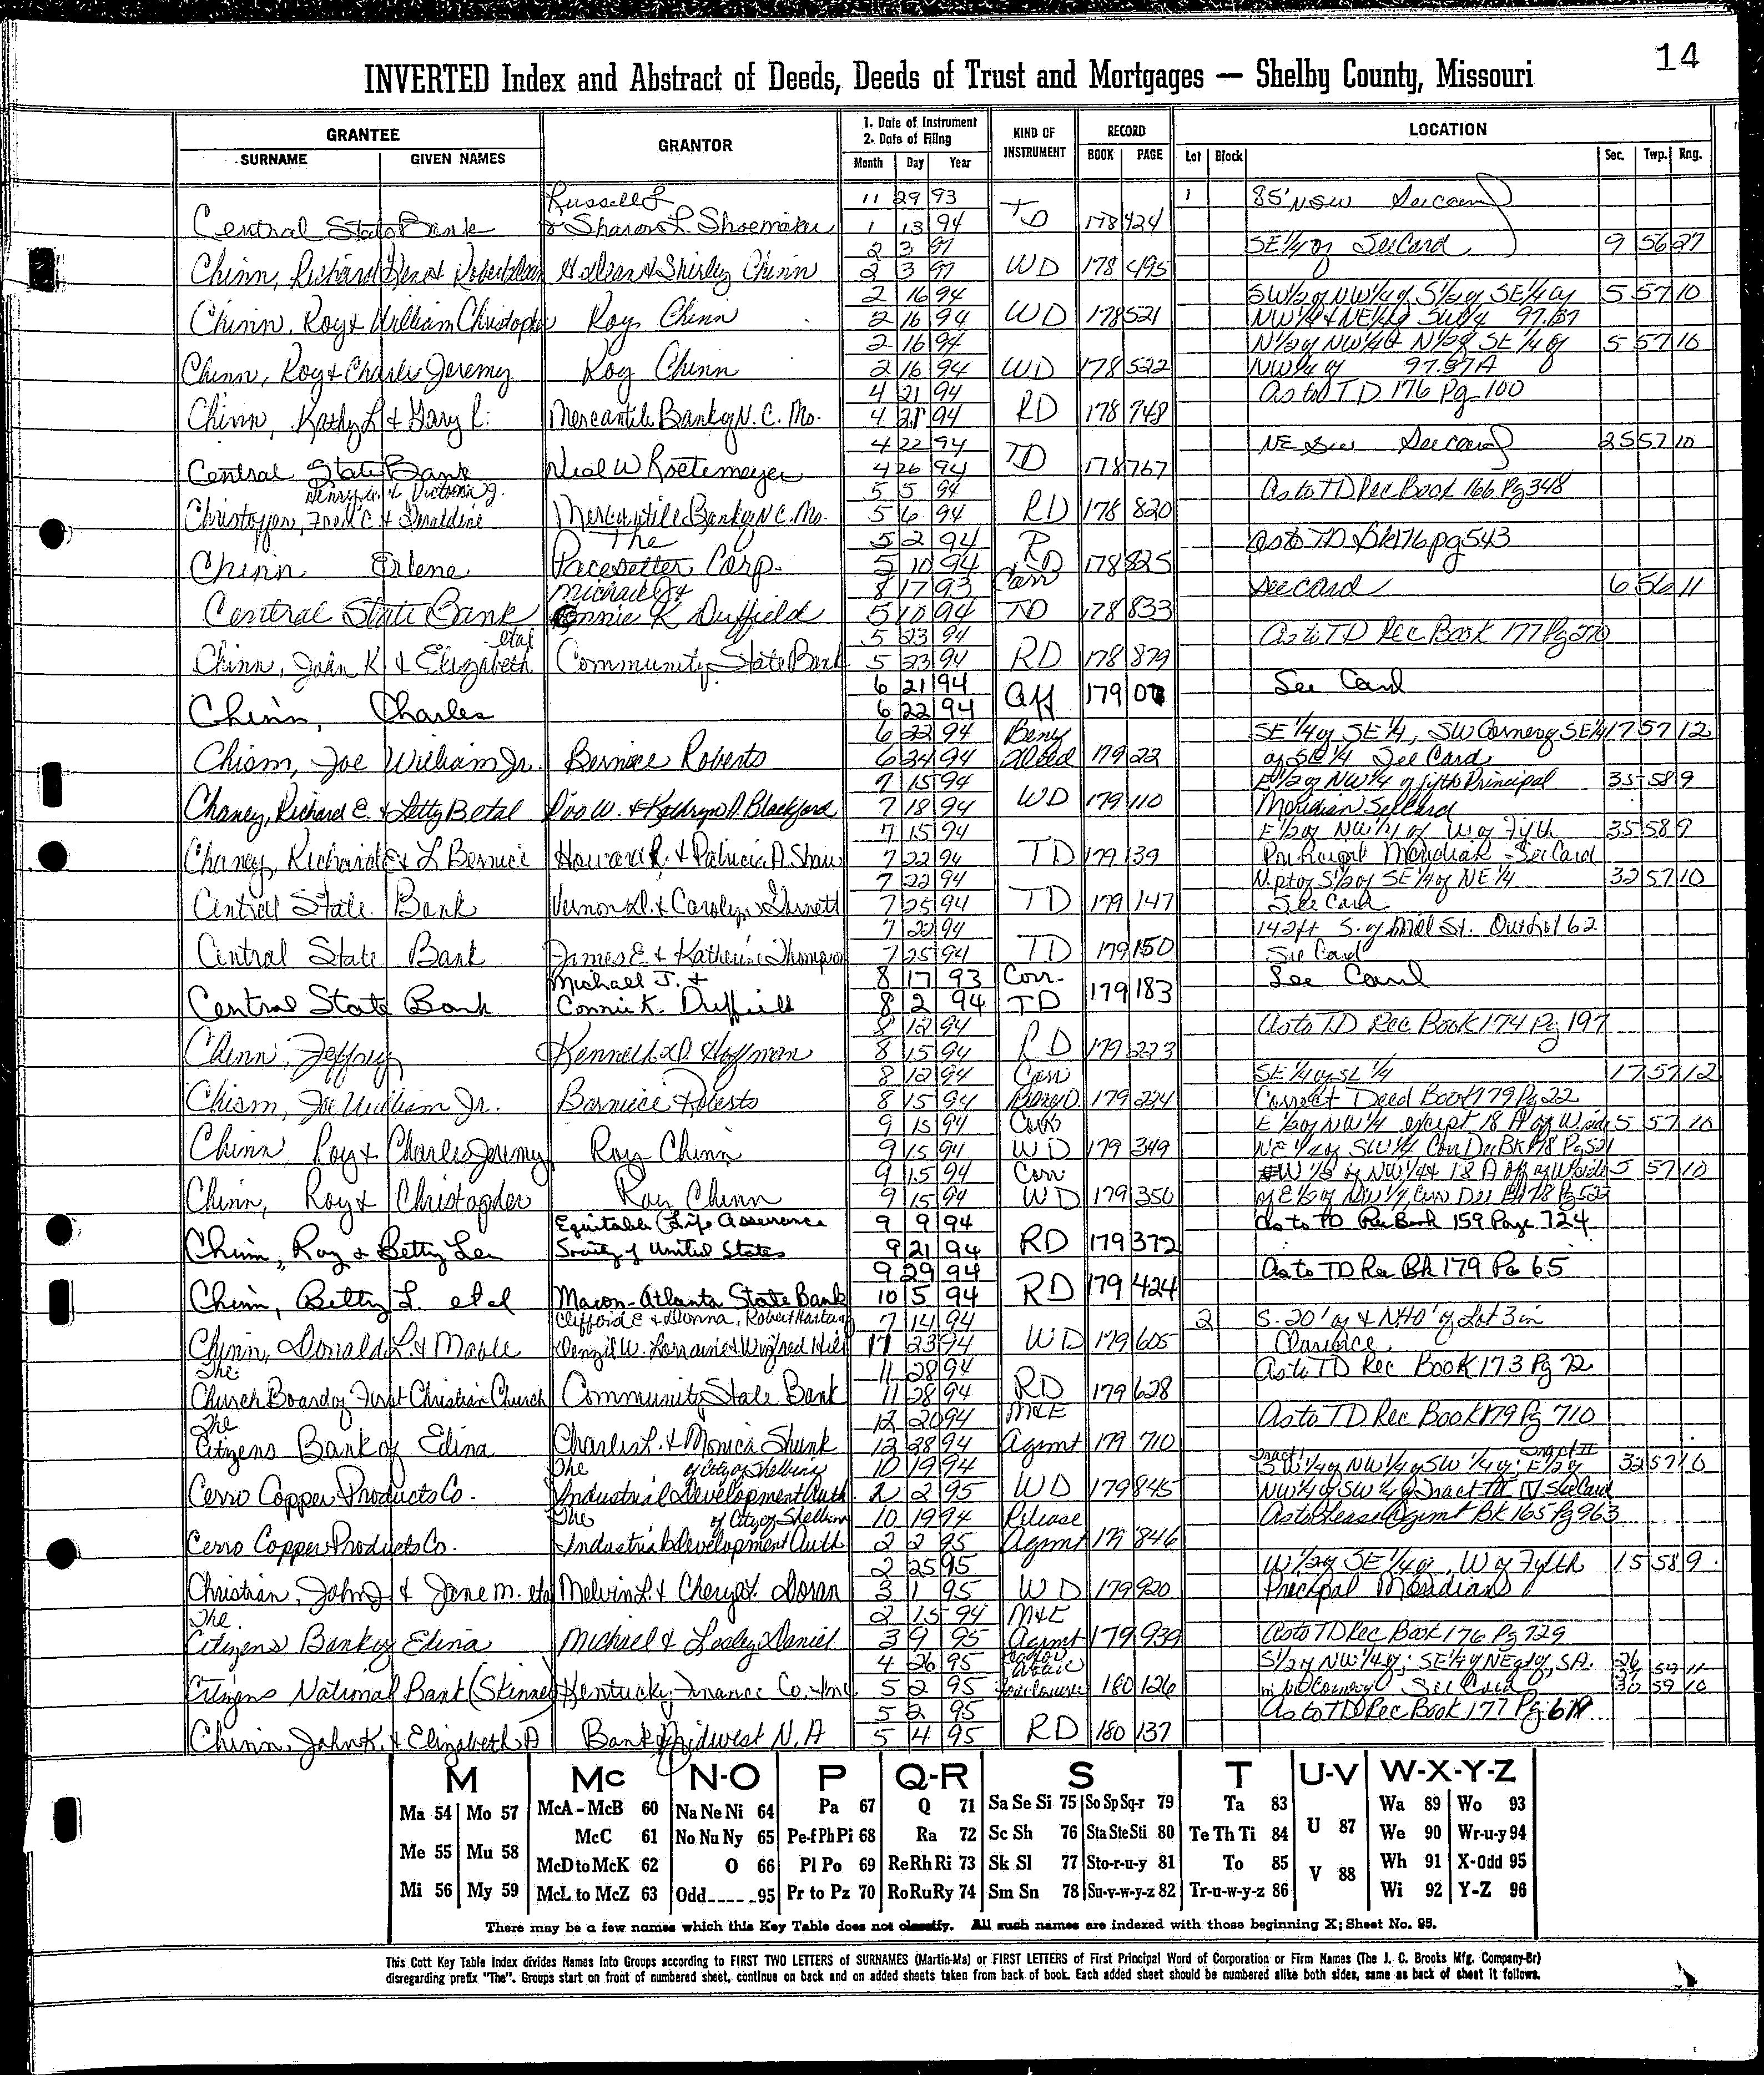 14
INVERTED Index and Abstract of Deeds, Deeds of Trust and Mortgages — Shelby County, Missouri
GRANTEE
SURNAME GIVEN NAMES
GRANTOR
1. Date of Instrument
2. Date of Filing
Month Day Year
KIND OF INSTRUMENT
RECORD
BOOK PAGE
LOCATION
Lot Block Sec. Twp. Rng.
Russell L 11 29 93 1 85' NSW See card
Central State Bank & Sharon L. Shoemaker 1 13 94 TD 178 424
2 3 97 SE 1/4 of See Card 9 56 27
Chinn, Richard & Robert H. Dean & Shirley Chinn 2 3 97 WD 178 495
2 16 94 SW 1/2 of NW 1/4 of S 1/2 of SE 1/4 of 5 57 10
Chinn, Roy & William Christopher Roy Chinn 2 16 94 WD 178 521 NW 1/4 & NE 1/4 of SW 1/4 97.87
2 16 94 N 1/2 of NW 1/4 & N 1/2 of SE 1/4 of 5 57 10
Chinn, Roy & Charles Jeremy Roy Chinn 2 16 94 WD 178 522 NW 1/4 of 97.87A
4 21 94 As to TD 176 Pg 100
Chinn, Kathy L & Gary R. Mercantile Bank of N.C. Mo. 4 21 94 RD 178 748
4 22 94 NE See card 25 57 10
Central State Bank Neal W Roetemeyer 4 26 94 TD 178 767
Henry Jr. & Victoria J. 5 5 94 As to TD Rec Book 166 Pg 348
Christoffer, Fred C & Geraldine Mercantile Bank of N C. Mo. 5 6 94 RD 178 820
The 5 2 94 R As to TD Bk 176 pg 543
Chinn Erlene Pacesetter Corp. 5 10 94 RD 178 825
Michael J & 8 17 93 Corr See card 6 56 11
Central State Bank Connie K Duffield 5 10 94 TD 178 833
etal 5 23 94 As to TD Rec Book 177 Pg 270
Chinn, John K & Elizabeth Community State Bank 5 23 94 RD 178 879
6 21 94 See Card
Chinn, Charles 6 22 94 Aff 179 07
6 22 94 Beny SE 1/4 of SE 1/4, SW Corner of SE 1/4 17 57 12
Chism, Joe William Jr. Bernice Roberts 6 24 94 deed 179 22 of SE 1/4 See Card
7 15 94 E 1/2 of NW 1/4 of fifth Principal 35 58 9
Chaney, Richard E. & Letty B etal Ivo W. & Kathryn A. Blackford 7 18 94 WD 179 110 Meridian See Card
7 15 94 E 1/2 of NW 1/4 of W of Fifth 35 58 9
Chaney, Richard E & L Bernice Howard R. & Patricia A. Shaw 7 22 94 TD 179 139 Principal Meridian - See Card
7 22 94 N. pt of S 1/2 of SE 1/4 of NE 1/4 32 57 10
Central State Bank Vernon D. & Carolyn Garnett 7 25 94 TD 179 147 See Card
7 22 94 142 ft S. of Mill St. Outlot 62
Central State Bank James E. & Katherine Thompson 7 25 94 TD 179 150 See Card
Michael J. & 8 17 93 Corr. See Card
Central State Bank Connie K. Duffield 8 2 94 TD 179 183
8 12 94 As to TD Rec Book 174 Pg 197
Chinn, Jeffrey Kenneth D. Hoffman 8 15 94 RD 179 223
8 12 94 Corr SE 1/4 of SE 1/4 17 57 12
Chism, Joe William Jr. Berniece Roberts 8 15 94 Beny D. 179 224 Correct Deed Book 179 Pg 22
9 15 94 Corr E 1/2 of NW 1/4 except 18 A off W side 5 57 10
Chinn Roy & Charles Jeremy Roy Chinn 9 15 94 WD 179 349 NE 1/4 of SW 1/4 Corr Dee Bk 178 Pg 521
9 15 94 Corr W 1/2 of NW 1/4 & 18 A off of W side 5 57 10
Chinn, Roy & Christopher Roy Chinn 9 15 94 WD 179 350 of E 1/2 of NW 1/4 Corr Dee Bk 178 Pg 522
Equitable Life Assurence 9 9 94 As to TD Rec Book 159 Page 724
Chinn, Roy & Betty Lee Society of United States 9 21 94 RD 179 372
9 29 94 As to TD Rec Bk 179 Pg 65
Chinn, Betty L. etal Macon-Atlanta State Bank 10 5 94 RD 179 424
Clifford E & Donna, Robert 7 14 94 2 S. 20' of & N40' of Lot 3 in
Chinn, Donald L. & Marie Denzil W. Lorraine & Winfred Hill 11 23 94 WD 179 605 Clarence
The 11 28 94 As to TD Rec Book 173 Pg 72
Church Board of First Christian Church Community State Bank 11 28 94 RD 179 628
The 12 20 94 M&E As to TD Rec Book 179 Pg 710
Citizens Bank of Edina Charles L. & Monica Shunk 12 28 94 Agmt 179 710
The of City of Shelbina 10 19 94 Tract I SW 1/4 of NW 1/4 of SW 1/4 of; Tract II E 1/2 of 32 57 10
Cerro Copper Products Co. Industrial Development Auth. 2 2 95 WD 179 845 NW 1/4 of SW 1/4 of Tract III IV See Card
The of City of Shelbina 10 19 94 Release As to Lease Agmt Bk 165 Pg 963
Cerro Copper Products Co. Industrial Development Auth 2 2 95 Agmt 179 846
2 25 95 W 1/2 of SE 1/4 of W of Fifth 15 58 9
Christian, John J & Jane M. etal Melvin L. & Cheryl L. Doran 3 1 95 WD 179 920 Principal Meridian
The 2 15 94 M&E
Citizens Bank of Edina Michael & Lesley Daniel 3 9 95 Agmt 179 939 As to TD Rec Book 176 Pg 729
4 26 95 S 1/2 of NW 1/4 of; SE 1/4 of NE 1/4 of, 5A. 26 59 11
Citizens National Bank (Skinner) Kentucky Finance Co. Inc. 5 2 95 foreclosure 180 126 in NW Corner of See Card 30 59 10
5 2 95 As to TD Rec Book 177 Pg 619
Chinn, John K. & Elizabeth A Bank Midwest N.A 5 4 95 RD 180 137
M Mc N-O P Q-R S T U-V W-X-Y-Z
Ma 54 Mo 57 McA - McB 60 Na Ne Ni 64 Pa 67 Q 71 Sa Se Si 75 So Sp Sq-r 79 Ta 83 U 87 Wa 89 Wo 93
Me 55 Mu 58 McC 61 No Nu Ny 65 Pe-f Ph Pi 68 Ra 72 Sc Sh 76 Sta Ste Sti 80 Te Th Ti 84 We 90 Wr-u-y 94
McD to McK 62 O 66 Pl Po 69 Re Rh Ri 73 Sk Sl 77 Sto-r-u-y 81 To 85 V 88 Wh 91 X-Odd 95
Mi 56 My 59 McL to McZ 63 Odd 95 Pr to Pz 70 Ro Ru Ry 74 Sm Sn 78 Su-v-w-y-z 82 Tr-u-w-y-z 86 Wi 92 Y-Z 96
There may be a few names which this Key Table does not classify. All such names are indexed with those beginning X; Sheet No. 95.
This Cott Key Table Index divides Names into Groups according to FIRST TWO LETTERS of SURNAMES (Martin-Ma) or FIRST LETTERS of First Principal Word of Corporation or Firm Names (The J. C. Brooks Mfg. Company-Br)
disregarding prefix "The". Groups start on front of numbered sheet, continue on back and on added sheets taken from back of book. Each added sheet should be numbered alike both sides, same as back of sheet it follows.